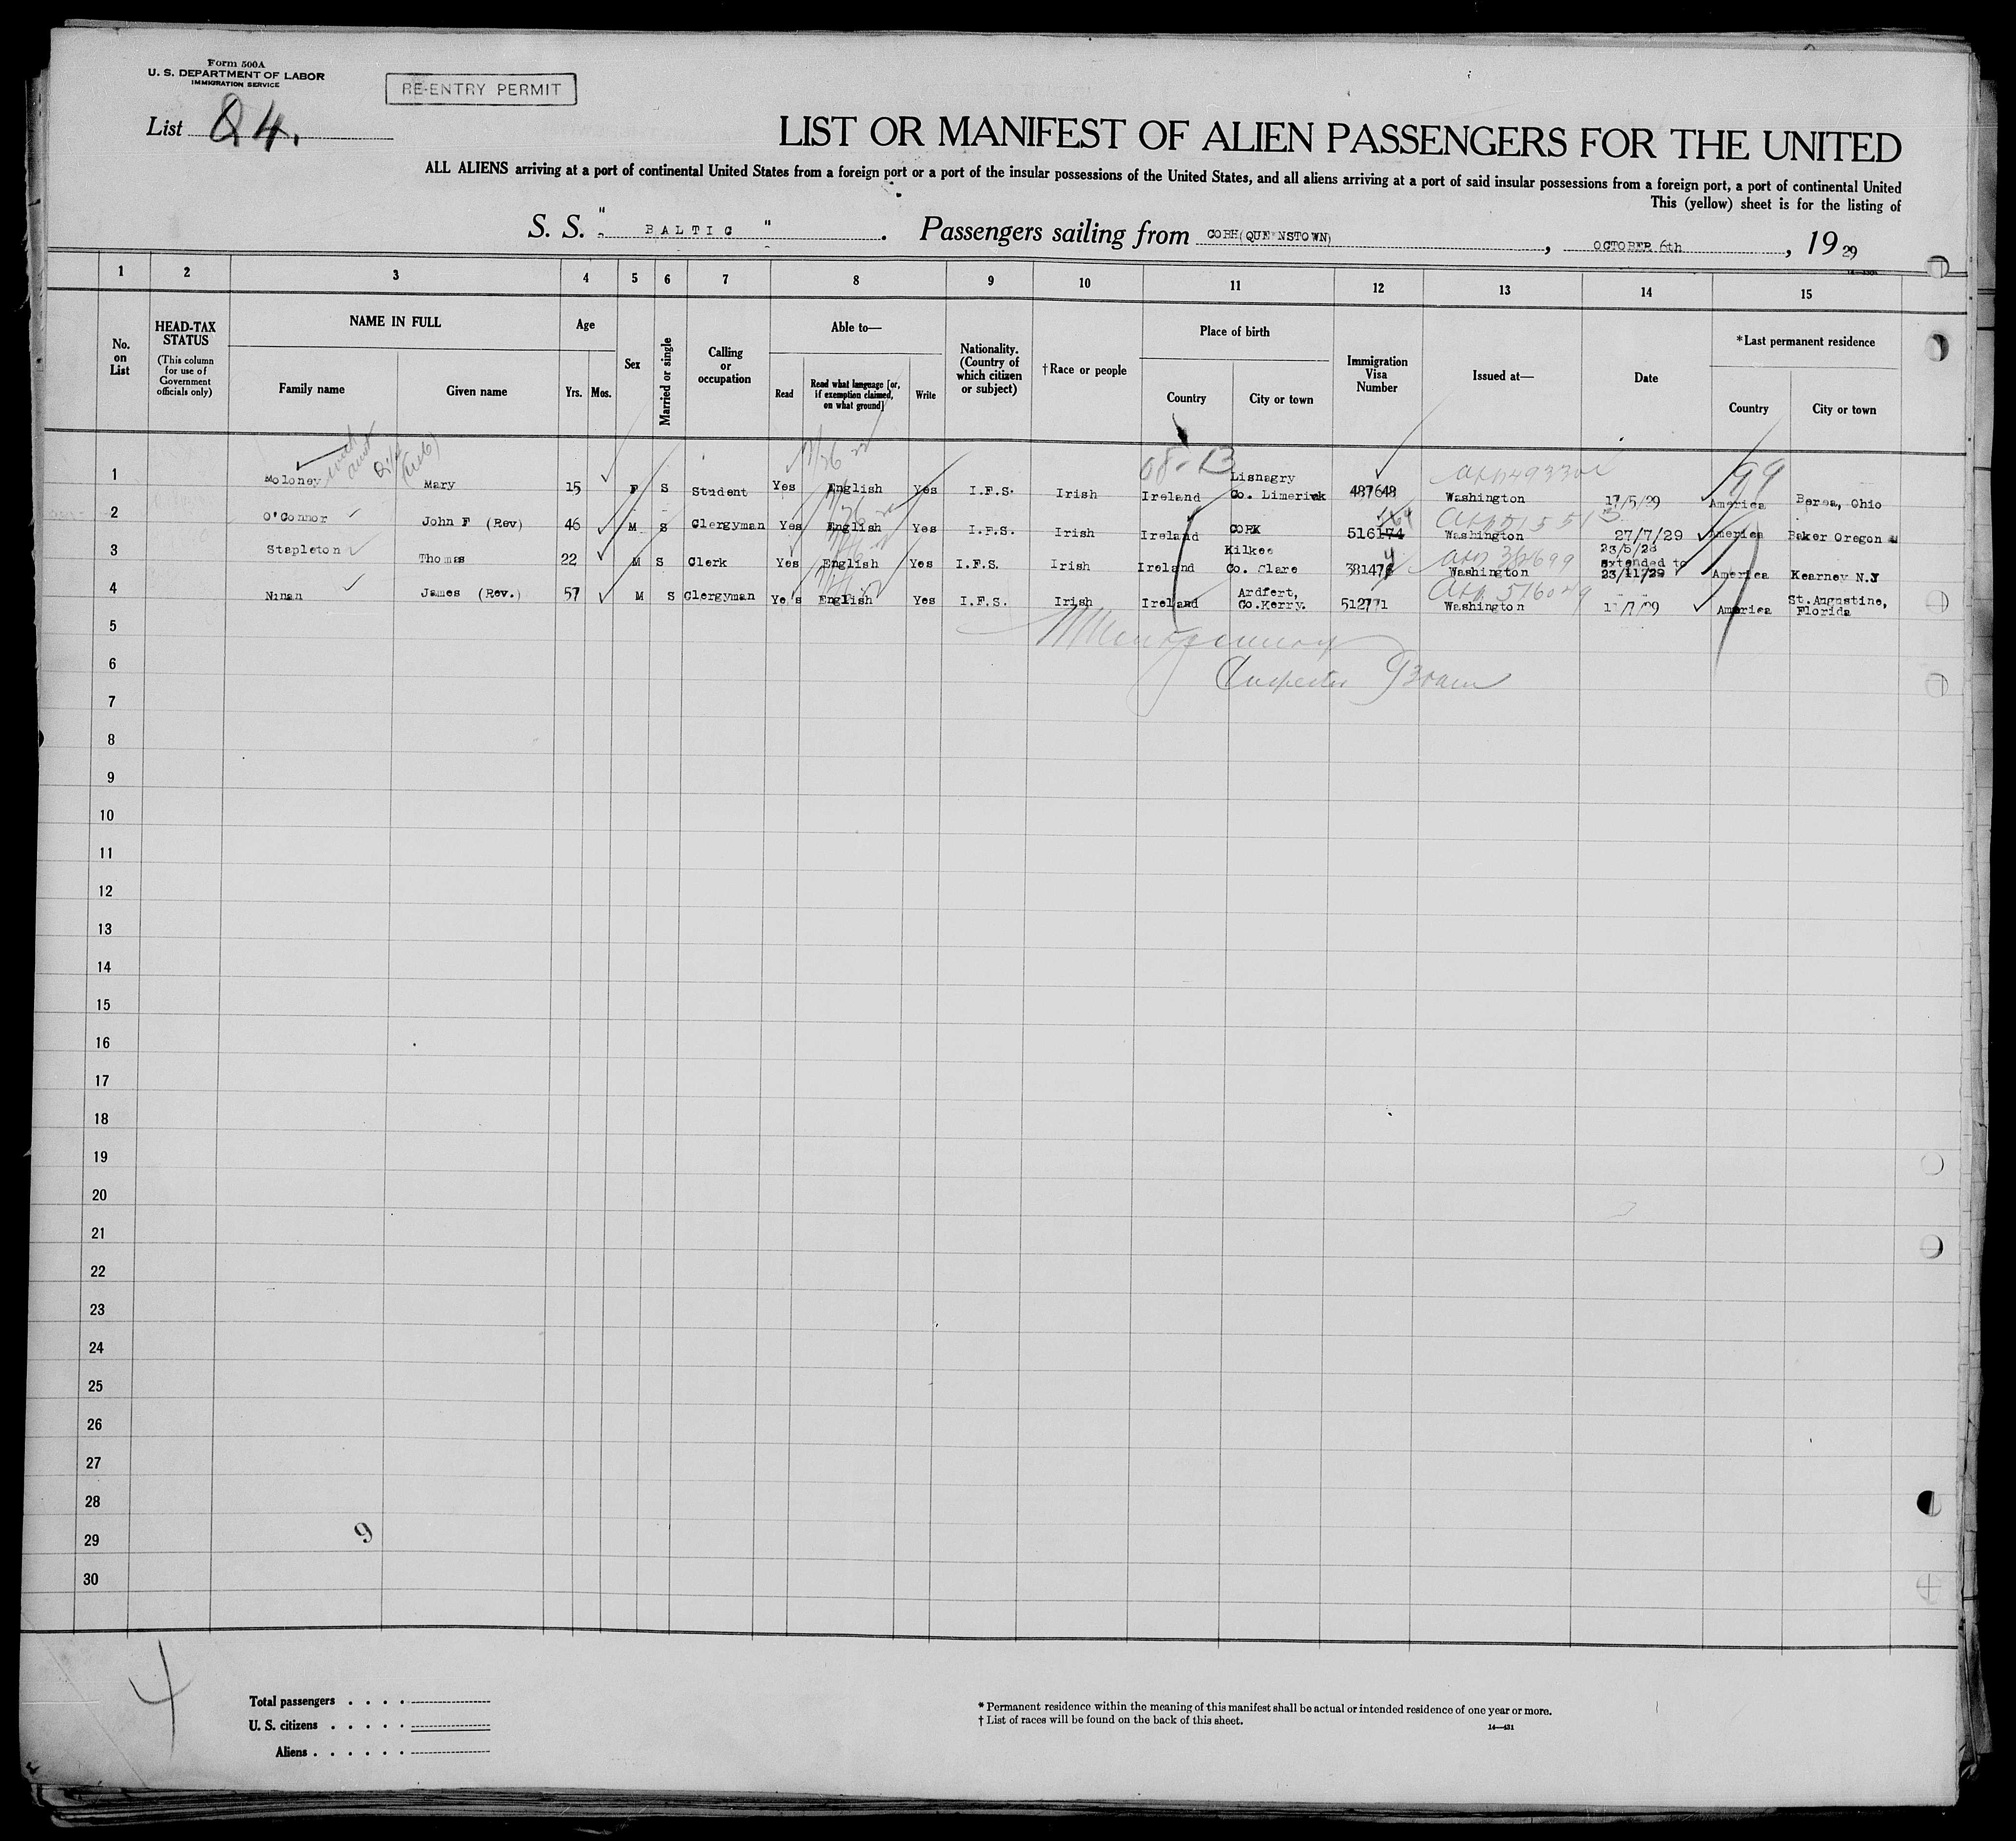 Form 500A
U. S. DEPARTMENT OF LABOR
IMMIGRATION SERVICE
RE-ENTRY PERMIT
List 84.
LIST OR MANIFEST OF ALIEN PASSENGERS FOR THE UNITED
ALL ALIENS arriving at a port of continental United States from a foreign port or a port of the insular possessions of the United States, and all aliens arriving at a port of said insular possessions from a foreign port, a port of continental United
This (yellow) sheet is for the listing of
S. S. " BALTIC ". Passengers sailing from COBH(QUE NSTOWN), OCTOBER 6th, 1929
1 2 3 4 5 6 7 8 9 10 11 12 13 14 15
No. on List
HEAD-TAX STATUS
(This column for use of Government officials only)
NAME IN FULL
Family name Given name
Age
Yrs. Mos.
Sex
Married or single
Calling or occupation
Able to—
Read Read what language [or, if exemption claimed, on what ground] Write
Nationality. (Country of which citizen or subject)
†Race or people
Place of birth
Country City or town
Immigration Visa Number
Issued at—
Date
*Last permanent residence
Country City or town
with aunt
08-13
99
1 Moloney Mary 15 F S Student Yes English Yes I.F.S. Irish Ireland Lisnagry Co. Limerick 487648 Washington 17/5/29 America Berea, Ohio
2 O'Connor John F (Rev) 46 M S Clergyman Yes English Yes I.F.S. Irish Ireland CORK 516174 Washington 27/7/29 America Baker Oregon
3 Stapleton Thomas 22 M S Clerk Yes English Yes I.F.S. Irish Ireland Kilkee Co. Clare 38147 4 Washington 23/5/28 extended to 23/11/29 America Kearney N.J
4 Ninan James (Rev.) 57 M S Clergyman Yes English Yes I.F.S. Irish Ireland Ardfert, Co.Kerry. 512771 Washington 1 /7/29 America St.Augustine, Florida
5
6 Inspector
7
8
9
10
11
12
13
14
15
16
17
18
19
20
21
22
23
24
25
26
27
28
29 9
30
4
Total passengers . . . .
U. S. citizens . . . . .
Aliens . . . . . .
* Permanent residence within the meaning of this manifest shall be actual or intended residence of one year or more.
† List of races will be found on the back of this sheet.
14—431